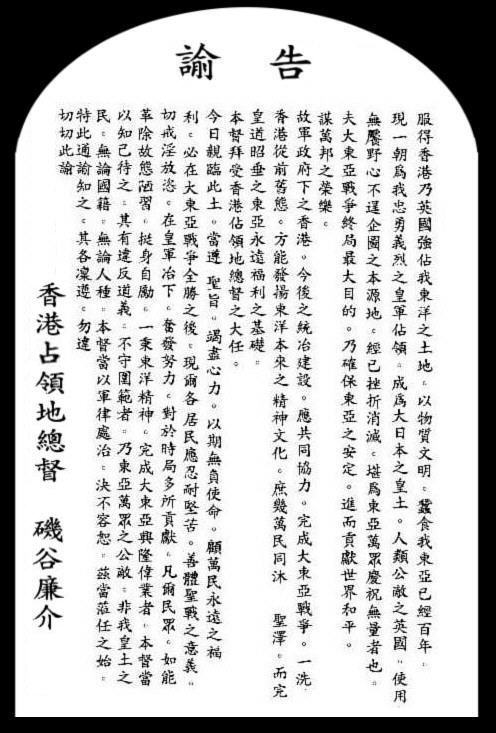 告諭
服得香港乃英國強佔我東洋之土地。以物質文明。蠶食我東亞已經百年。
現一朝爲我忠勇義烈之皇軍佔領。成爲大日本之皇土。人類公敵之英國。使用
無饜野心不逞企圖之本源地。經已挫折消滅。堪爲東亞萬眾慶祝無量者也。
夫大東亞戰爭終局最大目的。乃確保東亞之安定。進而貢獻世界和平。
謀萬邦之榮樂。
故軍政府下之香港。今後之統冶建設。應共同協力。完成大東亞戰爭。一洗
香港從前舊態。方能發揚東洋本來之精神文化。庶幾萬民同沐 聖澤。而完
皇道昭垂之東亞永遠福利之基礎。
本督拜受香港佔領地總督之大任。
今日親臨此土。當遵 聖旨。竭盡心力。以期無負使命。顧萬民永遠之福
利。必在大東亞戰爭全勝之後。現爾各居民應忍耐堅苦。善體聖戰之意義。
切戒淫放恣。在皇軍冶下。奮發努力。對於時局多所貢獻。凡爾民眾。如能
革除故態陋習。挺身自勵。一秉東洋精神。完成大東亞興隆偉業者。本督當
以知己待之。其有違反道義。不守圍範者。乃東亞萬眾之公敵。非我皇土之
民。無論國籍。無論人種。本督當以軍律處治。決不容恕。茲當蒞任之始。
特此通諭知之。其各凜遵。勿違
切切此諭
香港占領地總督 磯谷廉介